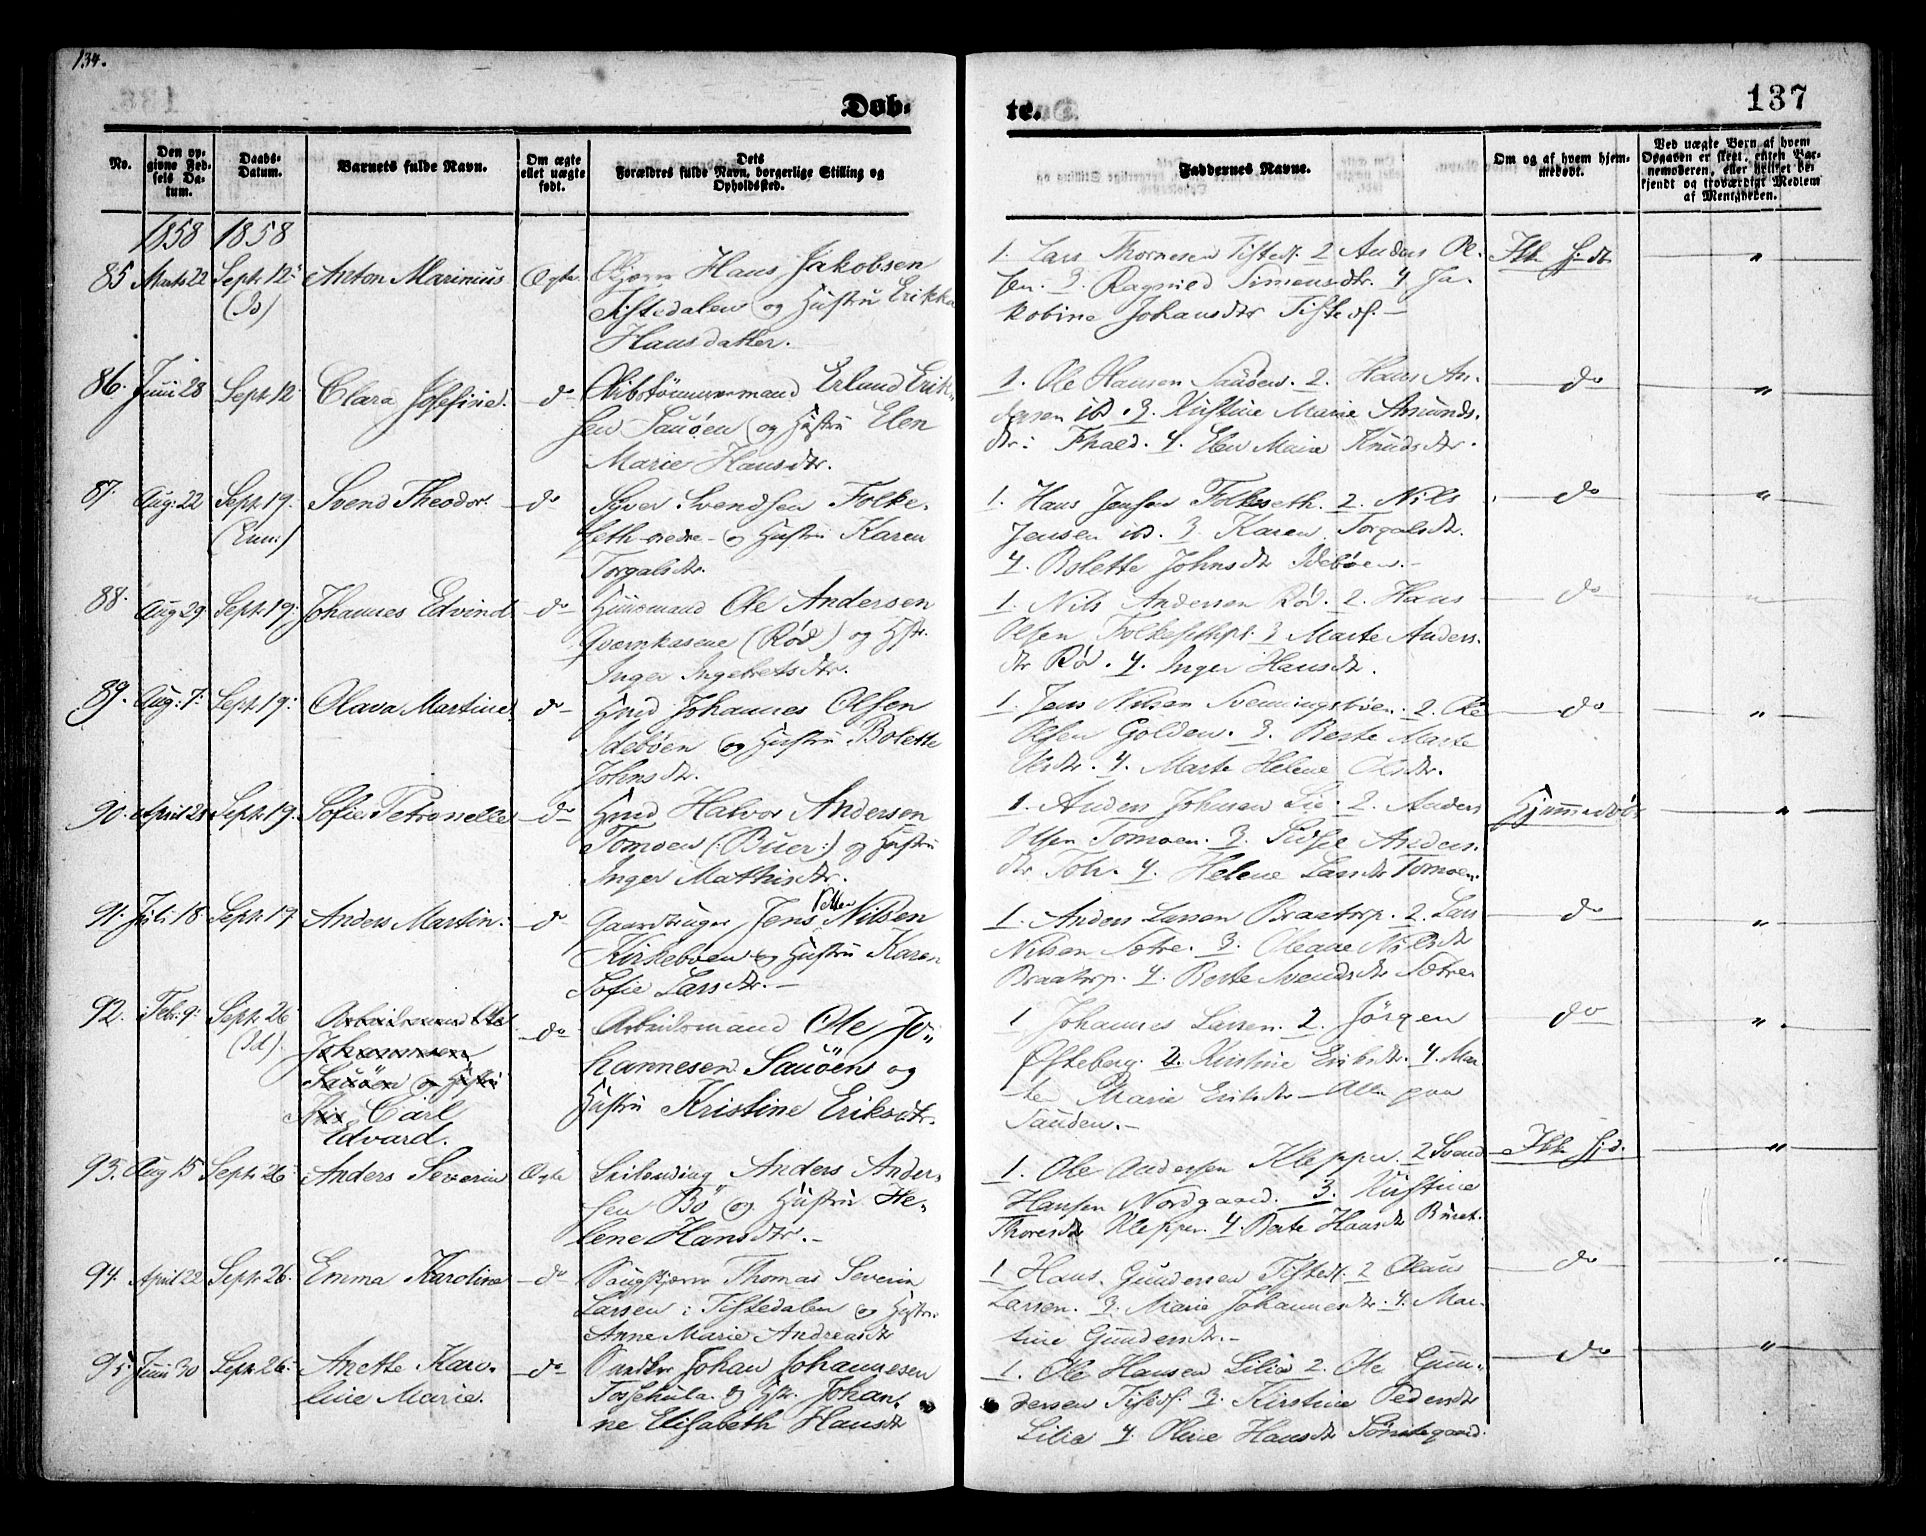 134.
137
Døb-
te.
No.
Den opgivne Fødsels Datum.
Daabs-Datum.
Barnets fulde Navn.
Om ægte eller uægte født.
Dets Forældres fulde Navn, borgerlige Stilling og Opholdssted.
Faddernes Navne.
Om og af hvem hjemmedøbt.
Ved uægte Børn af hvem Opgaven er skeet, enten Barnemoderen, eller hvilket bekjendt og troværdigt Medlem af Menigheden.
1858 1858
85 Marts 22 Septr 12: Anton Marinius Ægte Hans Jakobsen
(Id) Tistedalen og Hustru Erikka
Hansdatter.
1. Lars Thornesen Tisted: 2 Anders Ol-
sen. 3. Ragnild Simensdtr. 4 Ja-
kobine Johansdtr Tisteds. —
Ikk hj. dt "
86. Juni 28 Septr 12 Clara Josefine. do Erland Erik-
sen Sauøen og Hustru Elen
Marie Hansdtr.
1. Ole Hansen Sauøen. 2. Hans An-
dersen ibd. 3. Kirstine Marie Amunds-
dtr: 4. Elen Maria Knudsdtr.
do "
87. Aug: 22 Septr 19. Svend Theodor. do Syver Svendsen Folke-
(Enn:) seth nedre og Hustru Karen
Torgalsdtr.
1. Hans Jensen Folkeseth. 2. Nils
Jensen ibd. 3. Karen Torgalsdtr.
4. Bolette Johnsdtr Idebøen. —
do "
88. Aug 29 Septr 19: Johannes Edvind do Huusmand Ole Andersen
Qværnkasene (Rød) og Hstr.
Inger Ingebretsdtr.
1. Nils Andersen Rød. 2. Hans
Olsen Folkesethpl. 3 Marte Anders-
dtr Rød. 4. Inger Hansdtr.
do "
89. Aug: 7: Septr 19: Olava Martine. do Hmd Johannes Olsen
Idebøen og Hustru Bolette
Johnsdtr.
1. Jens Nilsen Svenningsbøen. 2. Ole
Olsen Golden. 3. Berte Marte
Olsdtr. 4. Marte Helene Olsdtr.
do "
90. April 21 Septr 19. Sofie Petronelle do Hmd Halvor Andersen
Tomoen (: Buer :) og Hustru
Inger Mathisdtr.
1. Anders Johnsen Lie. 2. Anders
Olsen Tomoen. 3. Anders-
dtr 4. Helene Larsdtr Tomoen.
Hjemmedøbt "
91. Juli 18. Septr 19 Anders Martin: do Gaardbruger Jens Petter Nilsen
Kirkebøen og Hustru Karen
Sofie Larsdtr. —
1. Anders Larsen Braatorp. 2. Lars
Nilsen Sætre. 3. Oleane Nilsdtr
Braatorp. 4. Berte Svendsdtr Sætre.
do "
92. Feb: 9: Septr 26 Arbeidsmand Ole do Arbeidsmand Ole Jo-
(Id). Johannesen hannesen Sauøens og
Sauøen og Hustru Hustru Kristine Eriksdtr.
Carl
Edvard.
1 Johannes Larsen. 2. Jørgen
Østeberg. 3. Kirstine Eriksdtr. 4. Ma-
Marie Eriksdtr — Alle paa
Sauøen. —
do "
93. Aug 15 Septr 26: Anders Severin Ægte Anders Anders-
sen Bø og Hustru He-
lene Hansdtr. —
1. Ole Andersen Klepper. 2 Svend
Hansen Nordgaard. 3. Kirstine
Thoresdtr Klepper. 4 Berte Hansdtr
Ikk hjd. "
94. April 22 Septr 26. Emma Karoline do Thomas Severin
Larsen i Tistedalen og Hustru
Anne Marie Andreasdtr
1 Hans Gundersen Tisteds. 2 Olaus
Larsen. 3. Marie Johannesdtr. 4. Mar-
tine Gundersdtr. —
do "
95. Juni 30 Septr 26: Anette Karo- do Johan Johannesen
line Marie. Torsekula og Hstr. Johan-
ne Elisabeth Hansdtr
1. Ole Hansen Lilia 2. Ole Gun-
dersen Tisteds. 3. Kirstine Pedersdtr
Lilia 4. Oline Hansdtr Tønsegaard.
do "